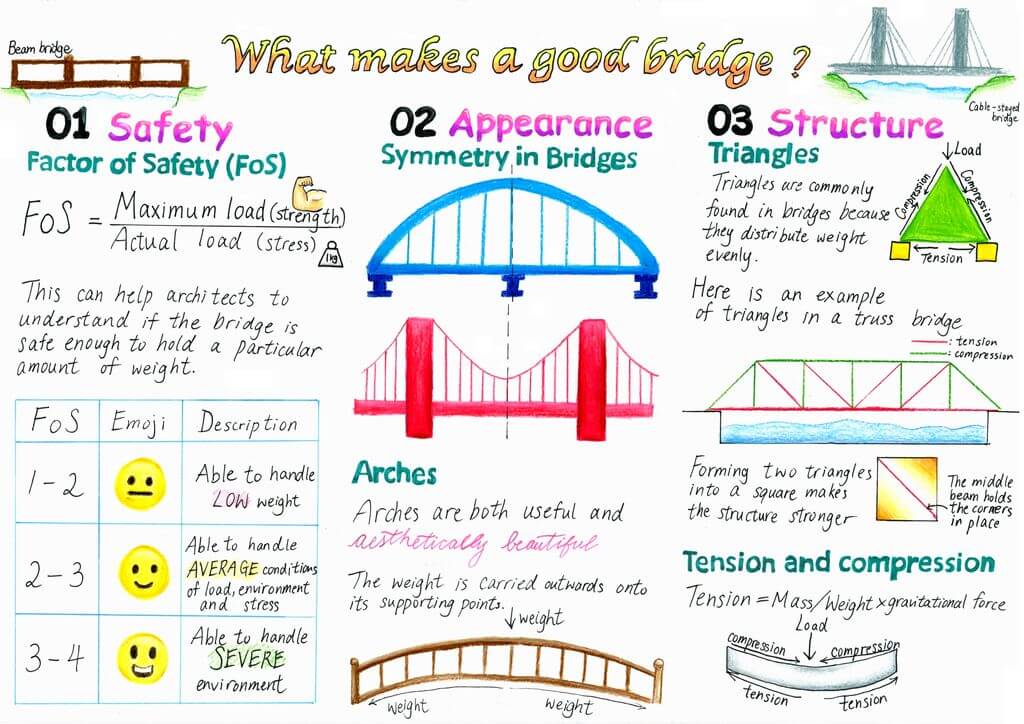 Beam bridge
What makes a good bridge ?
Cable-stayed
bridge
01 Safety
Factor of Safety (FoS)
FoS = Maximum load (strength)
Actual load (stress)
1kg
This can help architects to
understand if the bridge is
safe enough to hold a particular
amount of weight.
FoS Emoji Description
1-2
Able to handle
LOW weight
2-3
Able to handle
AVERAGE conditions
of load, environment
and stress
3-4
Able to handle
SEVERE
environment
02 Appearance
Symmetry in Bridges
Arches
Arches are both useful and
aesthetically beautiful
The weight is carried outwards onto
its supporting points.
weight
weight weight
03 Structure
Triangles
Triangles are commonly
found in bridges because
they distribute weight
evenly.
Load
Compression
Compression
Tension
Here is an example
of triangles in a truss bridge
: tension
: compression
Forming two triangles
into a square makes
the structure stronger
The middle
beam holds
the corners
in place
Tension and compression
Tension = Mass/Weight × gravitational force
Load
compression compression
tension tension